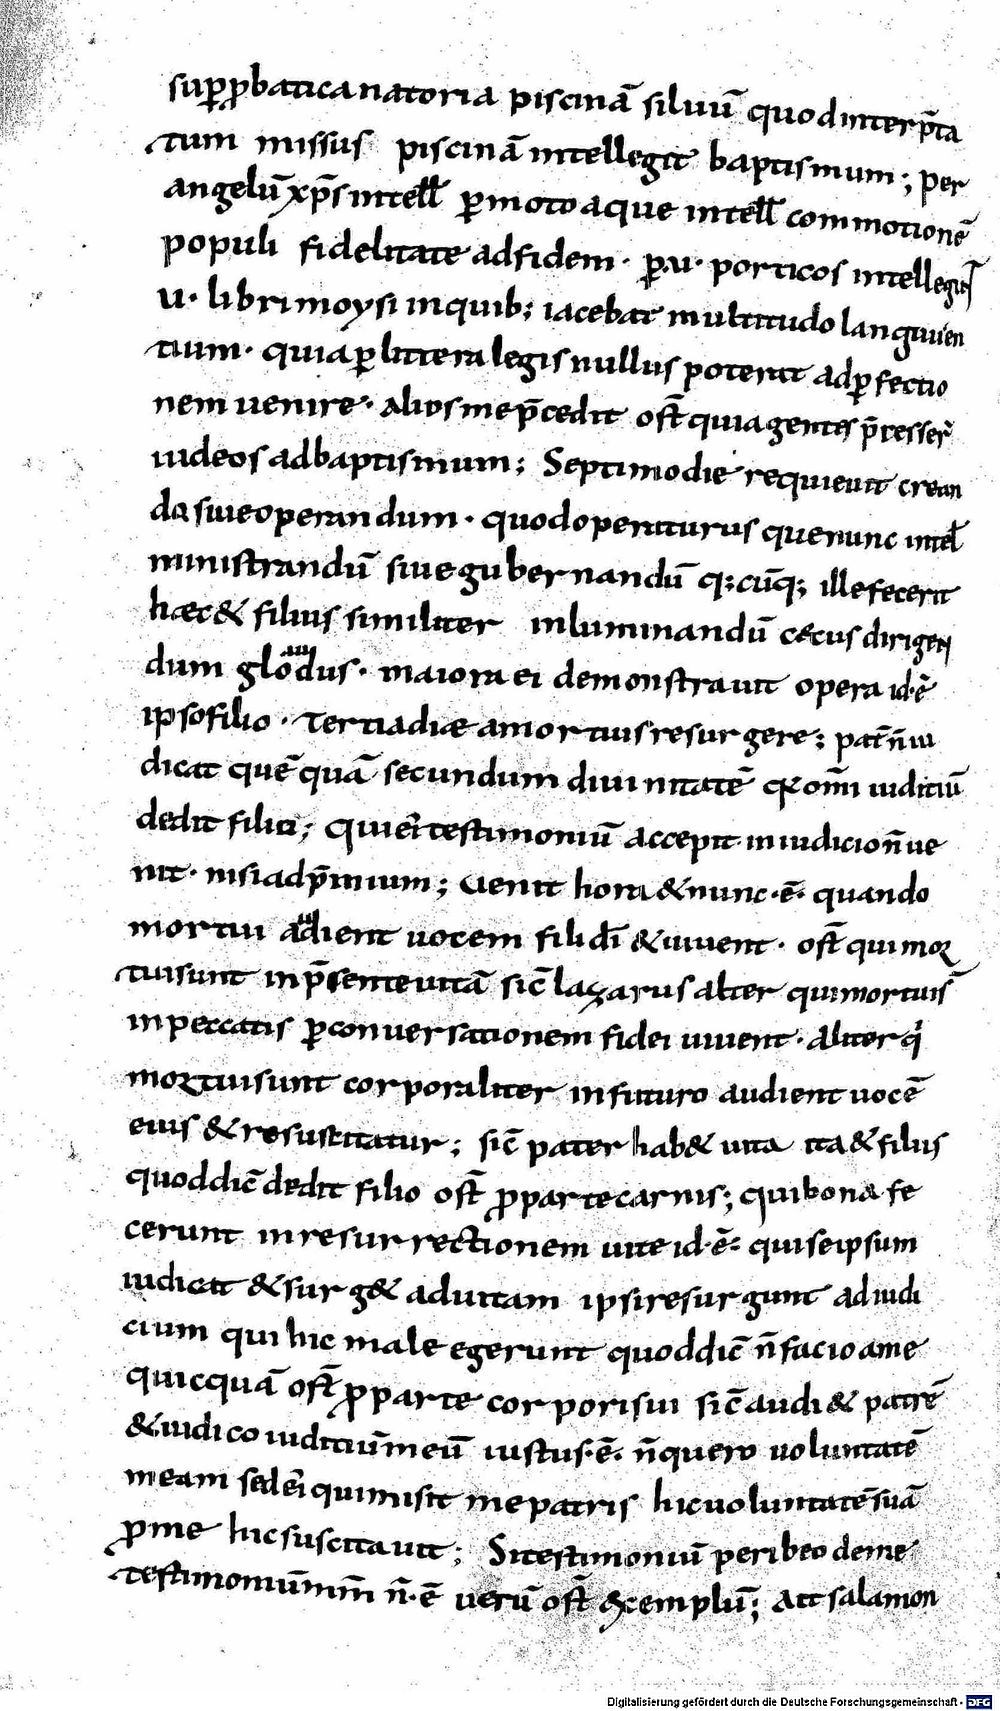 sup ꝓbatica natoria piscinā siluū quod interp̄ta
tum missus piscinā intellegit baptismum; per
angelū xp̄s intell̄ ꝑ moto aque intell̄ commotionē
populi fidelitate ad fidem · ꝑ · u · porticos intellegit̄
u · libri moysi in quib; iacebat multitudo languen
tium · quia ꝑ littera legis nullus poterat ad ꝑfectio
nem uenire · alius me p̄cedit ost̄ quia gentes p̄cesser̄
iudeos ad baptismum; Septimo die requieuit crean
do siue operandum · quod operaturus que nunc intel̄
ministrandū siue gubernandū q;cūq; ille fecerit
hæc & filius similiter inluminandū cecus dirigen
dum glodus · maiora ei demonstrauit opera id · ē
ipso filio · tertia diæ a mortuis resurgere; pat̄ n̄ iu
dicat quēquā secundum diuinitatē qR omn̄i iuditiū
dedit filio; Qui ei testimoniū accepit in iudicio n̄ ue
nit · nisi ad p̄mium; Uenit hora & nunc · ē · quando
mortui audient uocem fili dī & uiuent · ost̄ qui mor
tui sunt in p̄sente uitā sic̄ lazarus alter qui mortuis̄
in peccatis ꝑ conuersationem fidei uiuent · aliter q
mortui sunt corporaliter in futuro audient uocē
eius & resuscitatur; sic̄ pater hab& uita ita & filius
quod dic̄ dedit filio ost̄ ꝓ parte carnis; qui bona fe
cerunt in resurrectionem uite id · ē · qui se ipsum
iudicat & surg& ad uitam ipsi resurgunt ad iudi
cium qui hic male egerunt quod dic̄ n̄ facio a me
quicquā ost̄ ꝓ parte corporis ui sic̄ audi & patrē
& iudico iuditiū meū iustus · ē · n̄ quero uoluntatē
meam sed ei qui misit me patris hic uoluntatē suā
ꝓ me hic suscitauit; Si testimoniū peribeo de me
testimoniū mm̄ n̄ · ē uerū ost̄ exemplū; ait salamon
Digitalisierung gefördert durch die Deutsche Forschungsgemeinschaft - DFG